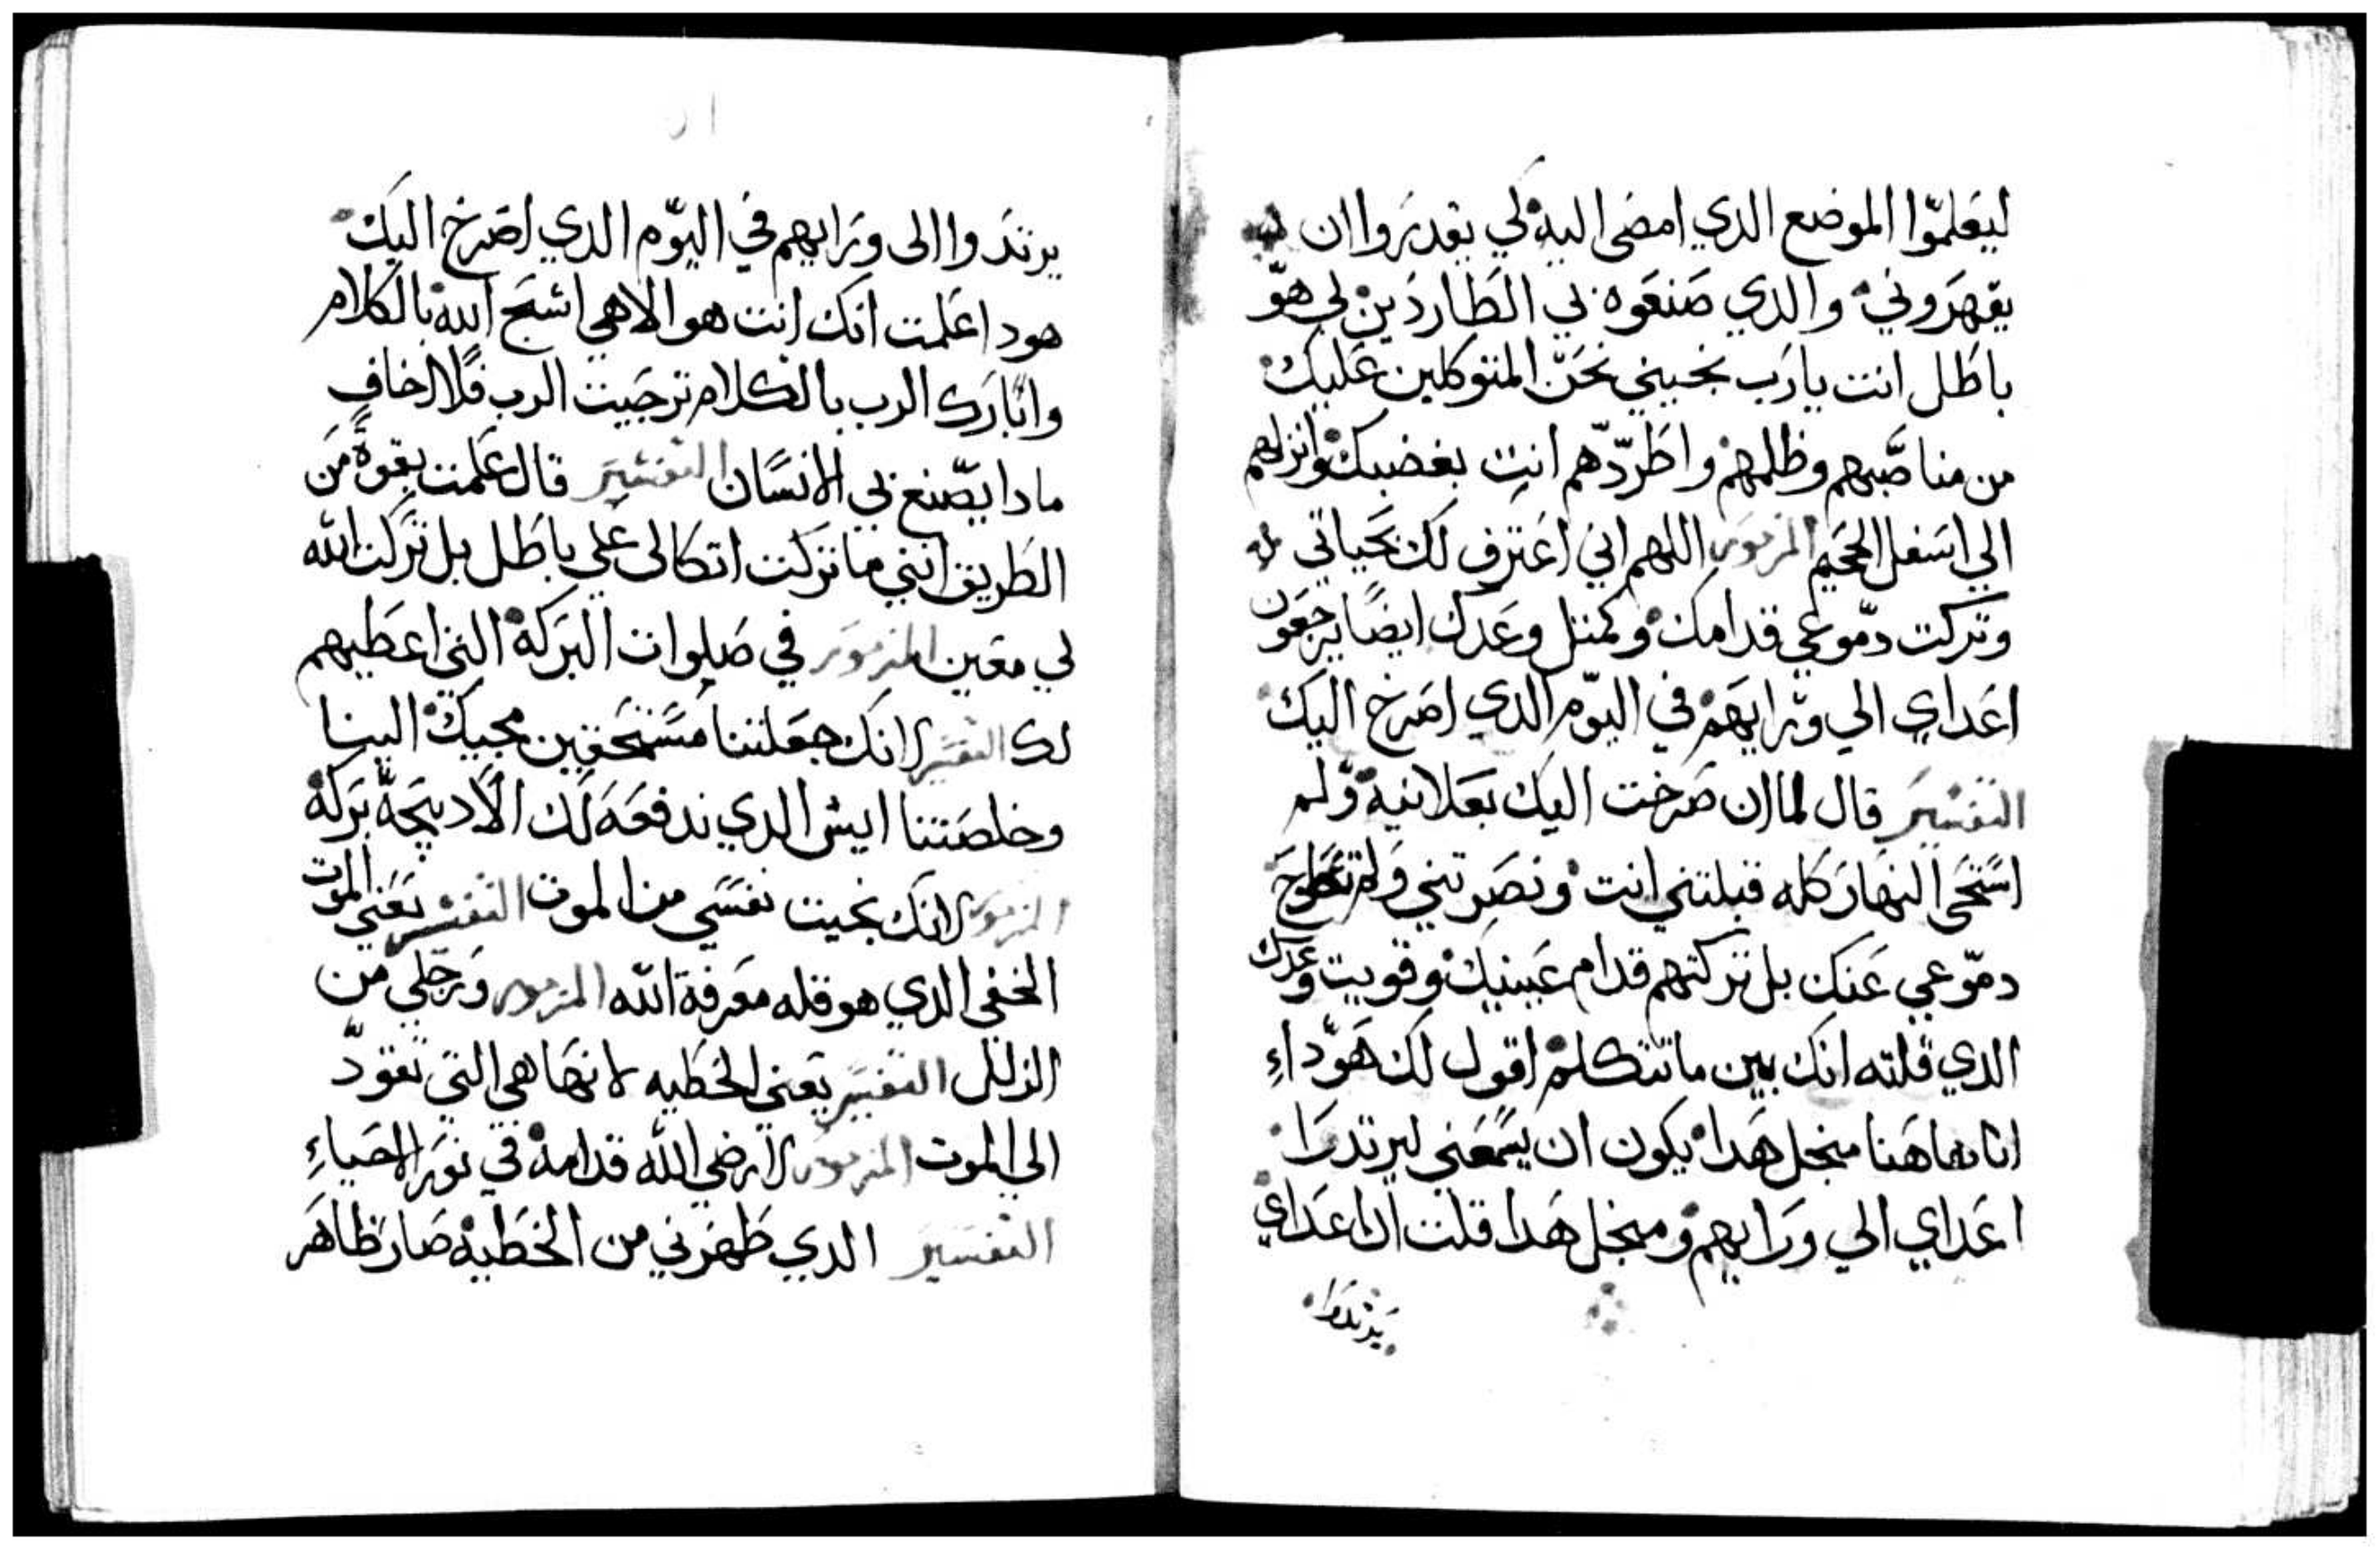 ليعلموا الموضع الدي امضى اليه لكي يقدروا ان
يقهروني والدي صنعوه بي الطاردين لي هو
باطل انت يارب نجيني نحن المتوكلين عليك
من مناصبهم وظلمهم واطردهم انت بغضبك وانزلهم
الي اسفل الجحيم المزمور اللهم اني اعترف لك بحياتي
وتركت دموعي قدامك وكمتل وعدك ايضا يرجعون
اعداي الي ورايهم في اليوم الدي اصرخ اليك
التفسير قال لما ان صرخت اليك بعلانيه ولم
استحي النهار كله قبلتني انت ونصرتني ولم تطرح
دموعي عنك بل تركتهم قدام عينيك وقويت وعدك
الدي قلته انك بين ما تتكلم اقول لك هوداء
انا هاهنا منجل هدا يكون ان يسمعني ليرتدوا
اعداي الي ورايهم ومنجل هدا قلت ان اعداي
يرتدوا
يرتدوا الى ورايهم في اليوم الدي اصرخ اليك
هودا علمت انك انت هو الاهي اشبح الله بالكلام
وانا ارك الرب بالكلام ترجيت الرب فلا اخاف
مادا يصنع بي الانسان التفسير قال علمت بقوة من
الطريق انني ما تركت اتكالى علي باطل بل تركت الله
لي معين المزمور في صلوات البركه التي اعطيهم
لك التفسير لانك جعلتنا مستحقين مجيك الينا
وخلصتنا ايش الدي ندفعه لك الا دبيحة بركه
المزمور لانك نجيت نفسي من الموت التفسير يعني الموت
الخفي الدي هو قله معرفة الله المزمور ورجلي من
الزلل التفسير يعني الخطيه لانها هي التي تقود
الي الموت المزمور لارضي الله قدامه في نور الاحياء
التفسير الدي طهرني من الخطيه صار ظاهر